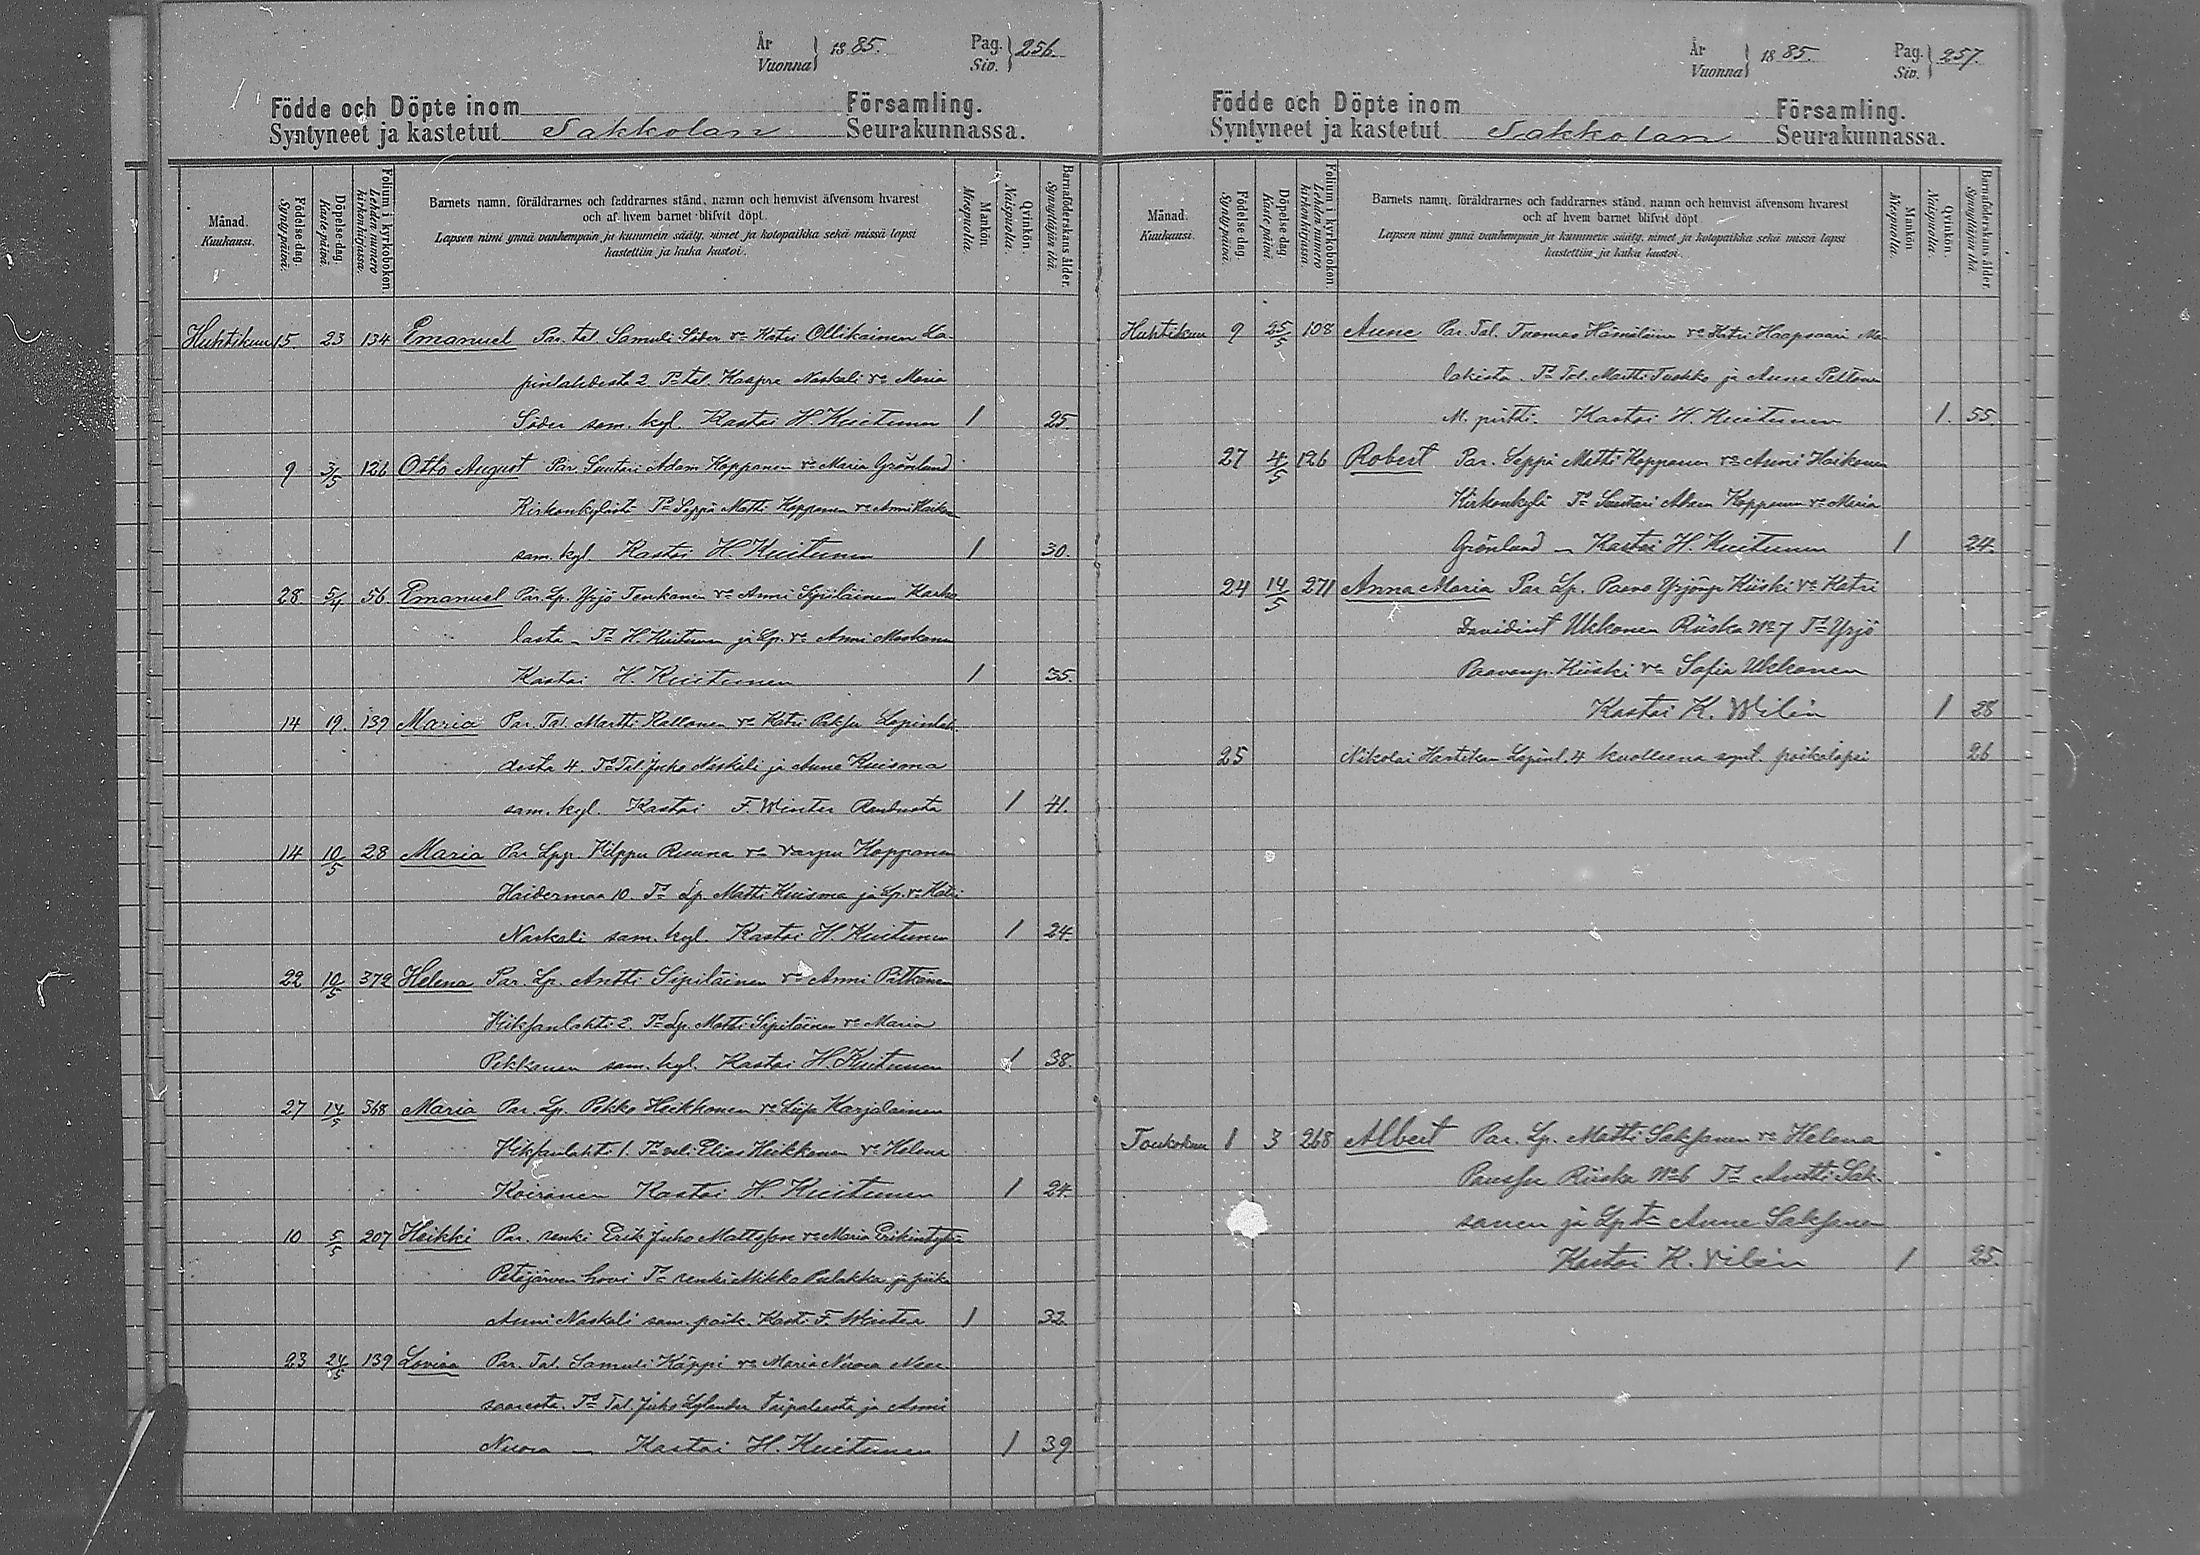 År Vuonna } 1885. Pag. Siv. } 256.
Födde och Döpte inom Församling.
Syntyneet ja kastetut Sakkolan Seurakunnassa.
Månad. Kuukausi.
Födelse-dag. Syntypäivä.
Döpelse-dag. Kastepäivä.
Folium i kyrkoboken. Lehden numero kirkonkirjassa.
Barnets namn, föräldrarnes och faddrarnes stånd, namn och hemvist äfvensom hvarest
och af hvem barnet blifvit döpt.
Lapsen nimi ynnä vanhempain ja kummein sääty, nimet ja kotopaikka sekä missä lapsi
kastettiin ja kuka kastoi.
Mankön. Miespuolia.
Qvinkön. Naispuolia.
Barnaföderskans ålder. Synnyttäjän ikä.
Huhtikuu 15. 23 134 Emanuel Par. tal. Samuli Söder vo Katri Ollikainen La-
pinlahdesta 2 To tal. Kaapre Naskali vo Maria
Söder sam. kyl. Kastoi H. Kuitunen 1 25.
9 3/5 126 Otto August Par. Suutari Adam Kopponen vo Maria Grönlund
Kirkonkylästä To Seppä Matti Kopponen vo Anni
sam. kyl. Kastoi H. Kuitunen 1 30.
28 5/4 56 Emanuel Par. Lp. Yrjö Tenkanen vo Anni Karho
lasta - To H. Kuitunen ja Lp. vo Anni
Kastoi H. Kuitunen 1 35.
14 19. 139 Maria Par. Tal. Martti Kallonen vo Katri Paksu Lapinlah
desta 4. To Tal. Juho Naskali ja Anna Kuisma
sam. kyl. Kastoi F. Winter Raudusta 1 41.
14 10/5 28 Maria Par. Hilppu Ruuna vo Varpu Kopponen
Haidermaa 10. To Lp. Matti Kuisma ja Lp. vo Katri
Naskali sam. kyl. Kastoi H. Kuitunen 1 24.
22 10/5 372 Helena Par. Lp. Antti Sipiläinen vo Anni Pitkänen
2. To Lp. Matti Sipiläinen vo Maria
Pekkanen sam. kyl. Kastoi H. Kuitunen 1 38.
27 14/5 368 Maria Par. Lp. Pekko Heikkonen vo Liisa Karjalainen
1. To veli Elias Heikkonen vo Helena
Koiranen Kastoi H. Kuitunen 1 24.
10 5/5 207 Heikki Par. renki Erik Juho Mattsson vo Maria Erikintytär
Petäjärven hovi To renki Mikko Pulakka ja piika
Anni Naskali sam. paik. Kast. F. Winter 1 32
23 24/5 139 Lovisa Par. Tal. Samuli Käppi vo Maria Nuora
saaresta. To Tal. Juho Taipaleesta ja Anni
Nuora - Kastoi H. Kuitunen 1 39
År Vuonna } 1885. Pag. Siv. } 257.
Födde och Döpte inom Församling.
Syntyneet ja kastetut Sakkolan Seurakunnassa.
Månad. Kuukausi.
Födelse dag. Syntypäivä.
Döpelse dag. Kastepäivä.
Folium i kyrkoboken. Lehden numero kirkonkirjassa.
Barnets namn, föräldrarnes och faddrarnes stånd, namn och hemvist äfvensom hvarest
och af hvem barnet blifvit döpt.
Lapsen nimi ynnä vanhempain ja kummein sääty, nimet ja kotopaikka sekä missä lapsi
kastettiin ja kuka kastoi.
Mankön. Miespuolia.
Qvinkön. Naispuolia.
Barnaföderskans ålder. Synnyttäjän ikä.
Huhtikuu 9 25/5 108 Aune Par. Tal. Tuomas Hämäläinen vo Katri Haapsaari
lakista. To Tal. Martti Tuokko ja Anna Peltonen
Kastoi H. Kuitunen 1. 55.
27 4/5 126 Robert Par. Seppä Matti Kopponen vo Anni Haikonen
Kirkonkylä To Suutari Adam Kopponen vo Maria
Grönlund - Kastoi H. Kuitunen 1 24.
24 14/5 271 Anna Maria Par Lp. Paavo Yrjönp Kiiski vo Katri
Davidint Ukkonen Riiska No 7 To Yrjö
Paavonp. Kiiski vo Sofia Ukkonen
Kastoi K. Wilén 1 28
25 Nikolai Hartikan Lapinl. 4 kuolleena synt. poikalapsi 26
Toukokuu 1 3 268 Albert Par. Lp. Matti Saksanen vo Helena
Paussu Riiska No 6 To Antti Sak-
sanen ja Lp tr Anna Saksanen
Kastoi K. Vilén 1 25.